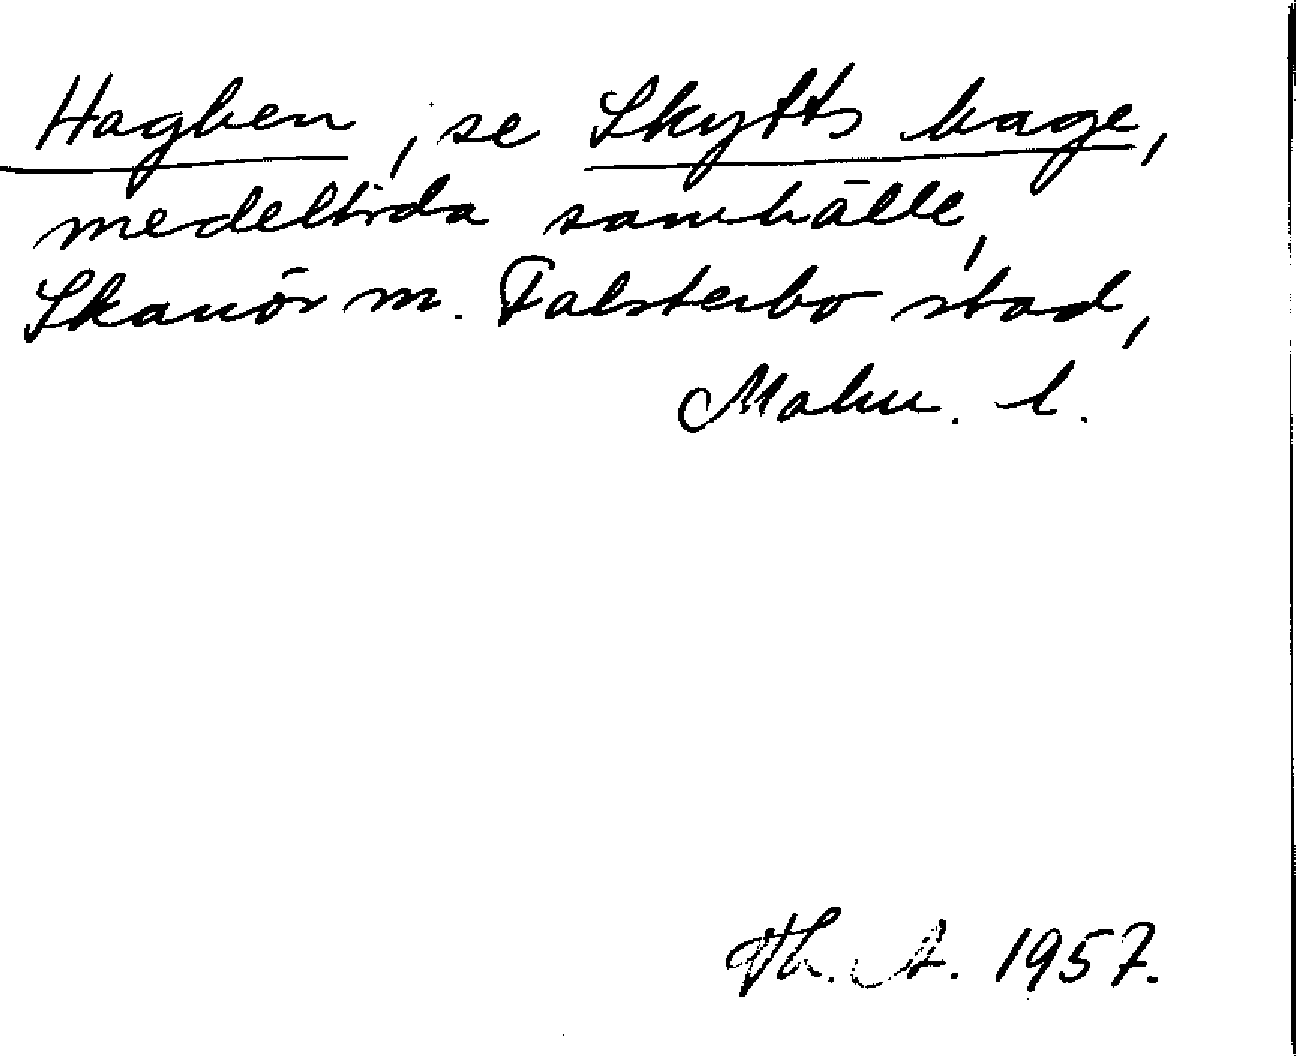 Hagben, se Skytts hage,
medeltida samhälle,
Skanör m. Falsterbo stad,
Malm. l.
Th. A. 1957.